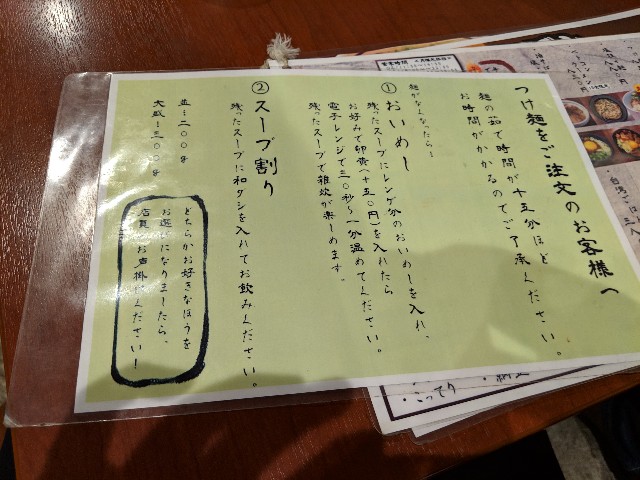 つけ麺をご注文のお客様へ
麺の茹で時間が十五分ほど
お時間がかかるのでご了承ください。
麺がなくなったら!
①おいめし
残ったスープにレンゲ分のおいめしを入れ、
お好みで卵黄(+五〇円)を入れたら
電子レンジで三〇秒~一分温めてください。
残ったスープで雑炊が楽しめます。
②スープ割り
残ったスープに和ダシを入れてお飲みください。
並…二〇〇g
大盛…三〇〇g
どちらかお好きなほうを
お選びになりましたら、
店員へお声掛けください!
・こってり